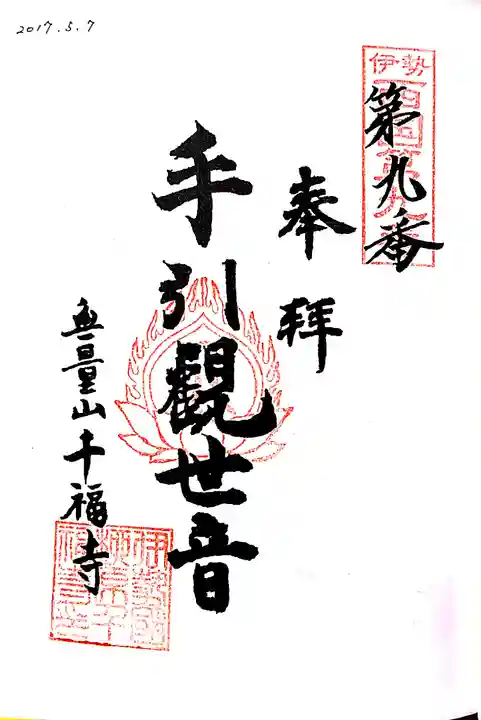 2017.5.7
伊勢
第九番
奉拝
手引觀世音
無量山千福寺